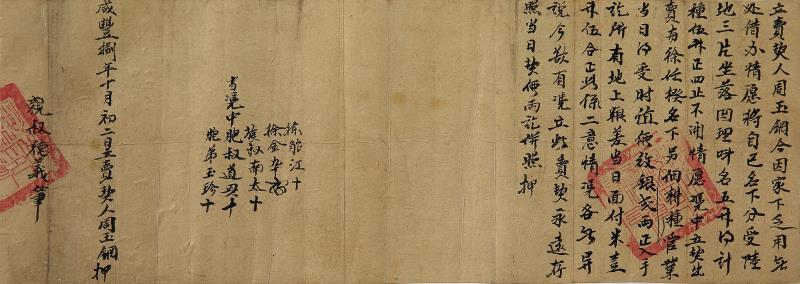 立賣契人周玉鋼今因家下乏用無
处借办情愿將自己名下分受陸
地三片坐落田理呌名五升的計
種伍升正四止不開情愿凴中立契出
賣与徐任揆名下為佃耕種管業
當日得受时值價紋銀弍兩正入手
訖所有地上粮差當日面付米壹
升伍合正此係二意情凴各無异
説今欲有凴立此賣契永遠存
照當日契價兩訖併照 押
徐能江十
徐金华
蔟叔南太十
当凴中胞叔道興十
胞弟玉珍十
咸豐捌年十月初二日立賣契人周玉鋼押
親叔德義筆